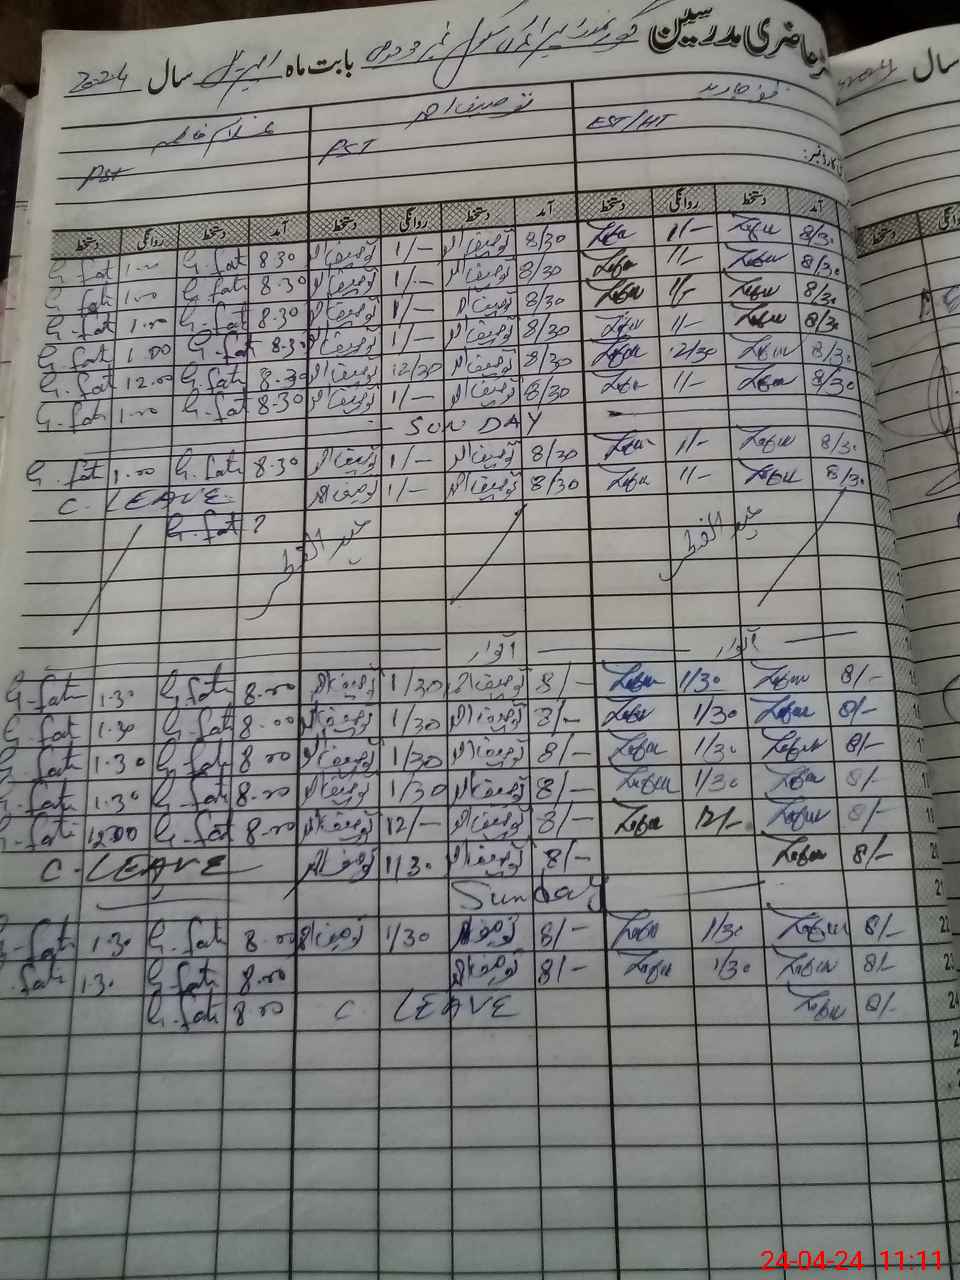 حاضری مدرسین گورنمنٹ پرائمری سکول نمبر 3 بابت ماہ اپریل سال 2024
سال 2024
ظفر جاوید توصیف احمد غلام فاطمہ
EST/HT PST PST
کارڈ نمبر:
آمد دستخط روانگی دستخط آمد دستخط روانگی دستخط آمد دستخط روانگی دستخط
8/30 Zafar 1/- Zafar 8/30 توصیف احمد 1/- توصیف احمد 8.30 G.fati 1.00 G.fati
8/30 Zafar 1/- Zafar 8/30 توصیف احمد 1/- توصیف احمد 8.30 G.fati 1.00 G.fati
8/30 Zafar 1/- Zafar 8/30 توصیف احمد 1/- توصیف احمد 8.30 G.fati 1.00 G.fati
8/30 Zafar 1/- Zafar 8/30 توصیف احمد 1/- توصیف احمد 8.30 G.fati 1.00 G.fati
8/30 Zafar 12/30 Zafar 8/30 توصیف احمد 12/30 توصیف احمد 8.30 G.fati 12.00 G.fati
8/30 Zafar 1/- Zafar 8/30 توصیف احمد 1/- توصیف احمد 8.30 G.fati 1.00 G.fati
SUNDAY
8/30 Zafar 1/- Zafar 8/30 توصیف احمد 1/- توصیف احمد 8.30 G.fati 1.00 G.fati
8/30 Zafar 1/- Zafar 8/30 توصیف احمد 1/- توصیف احمد C. LEAVE
G.fat ?
عید الفطر عید الفطر
اتوار اتوار
8/- Zafar 1/30 Zafar 8/- توصیف احمد 1/30 توصیف احمد 8.00 G.fati 1.30 G.fati
8/- Zafar 1/30 Zafar 8/- توصیف احمد 1/30 توصیف احمد 8.00 G.fati 1.30 G.fati
8/- Zafar 1/30 Zafar 8/- توصیف احمد 1/30 توصیف احمد 8.00 G.fati 1.30 G.fati
8/- Zafar 1/30 Zafar 8/- توصیف احمد 1/30 توصیف احمد 8.00 G.fati 1.30 G.fati
19 8/- Zafar 12/- Zafar 8/- توصیف احمد 12/- توصیف احمد 8.00 G.fati 12.00 G.fati
20 8/- Zafar 8/- توصیف احمد 1/30 توصیف احمد C. LEAVE
21 Sunday
22 8/- Zafar 1/30 Zafar 8/- توصیف احمد 1/30 توصیف احمد 8.00 G.fati 1.30 G.fati
23 8/- Zafar 1/30 Zafar 8/- توصیف احمد 8.00 G.fati 1.30 G.fati
24 8/- Zafar C. LEAVE 8.00 G.fati
24-04-24 11:11